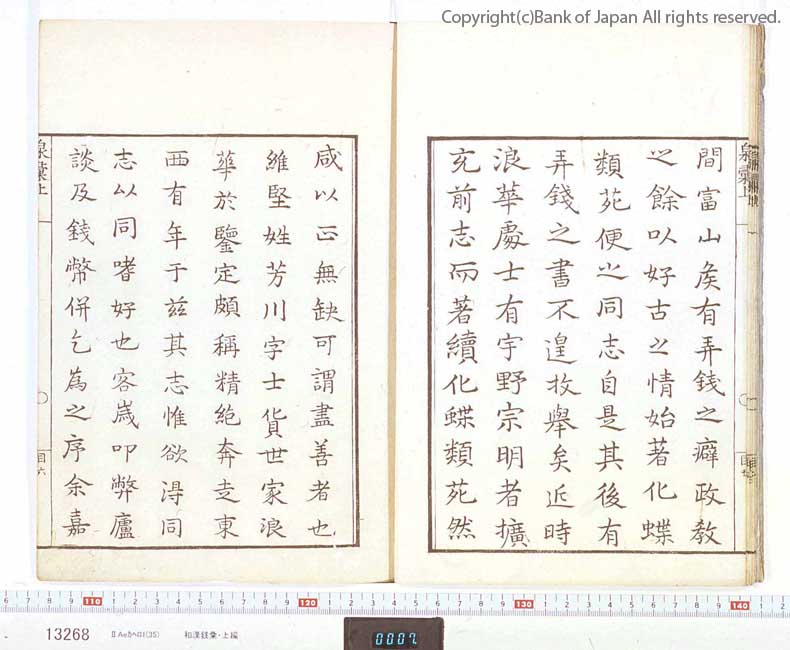 Copyright(c)Bank of Japan All rights reserved.
間富山矦有弄錢之癖政教
之餘以好古之情始著化蝶
類苑便之同志自是其後有
弄錢之書不遑枚舉矣近時
浪華處士有宇野宗明者擴
充前志而著續化蝶類苑然
咸以正無缺可謂盡善者也
維堅姓芳川字士貨世家浪
華於鑒定頗稱精絶奔走東
西有年于玆其志惟欲淂同
志以同嗜好也客歲叩弊廬
談及錢幣併乞為之序余嘉
泉彙上
目六
泉彙上
13268
ⅡAeカヘロ1(35)
和漢銭彙・上編
0007
110
120
130
140